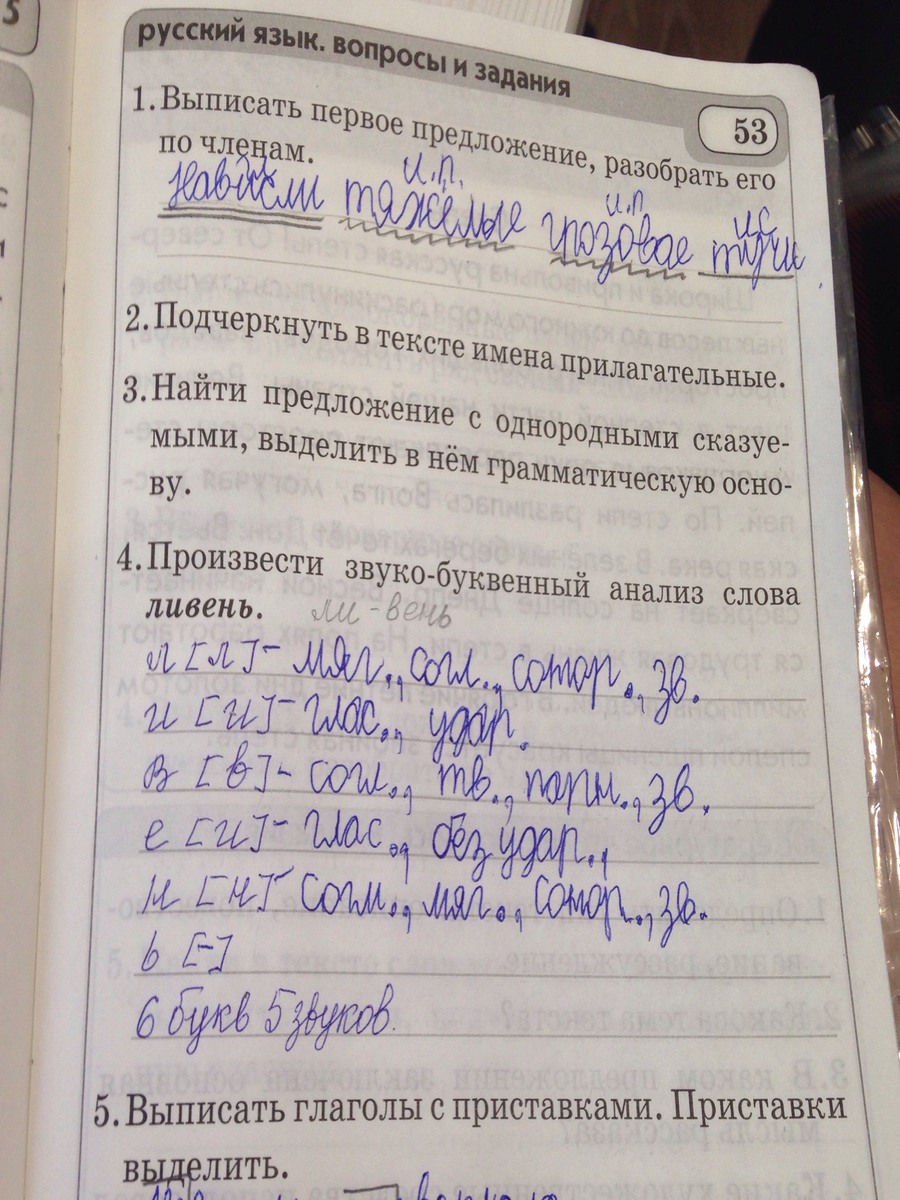 5
русский язык. вопросы и задания
53
1. Выписать первое предложение, разобрать его
по членам.
и.п. и.п и.с
Нависли тяжёлые грозовые тучи.
2. Подчеркнуть в тексте имена прилагательные.
3. Найти предложение с однородными сказуе-
мыми, выделить в нём грамматическую осно-
ву.
4. Произвести звуко-буквенный анализ слова
ливень. ли-вень
л [л] - мяг., согл., сонор., зв.
и [и] - глас., удар.
в [в] - согл., тв., парн., зв.
е [и] - глас., безудар.,
н [н] - согл., мяг., сонор., зв.
ь [-]
6 букв 5 звуков.
5. Выписать глаголы с приставками. Приставки
выделить.